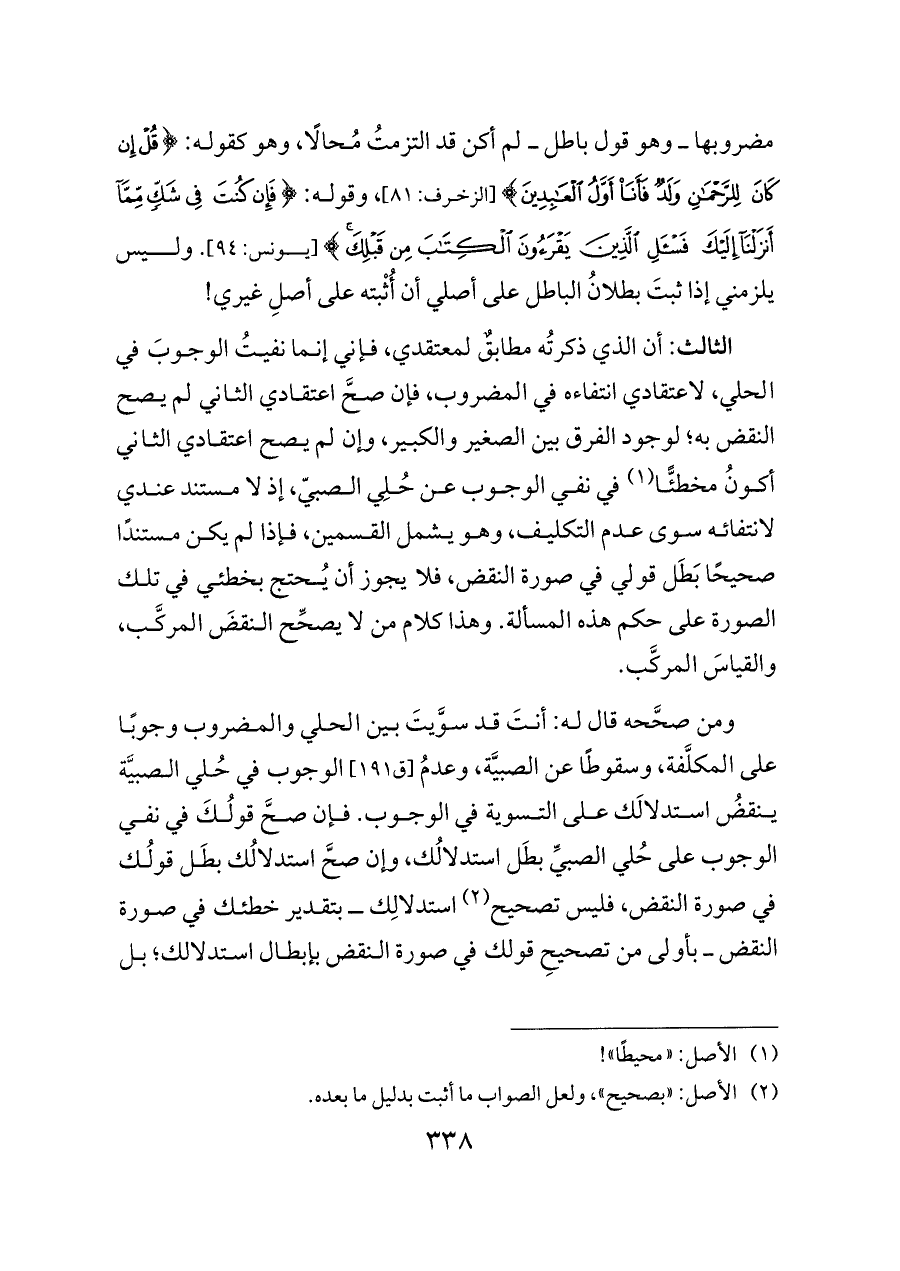 مضروبها ـ وهو قول باطل ـ لم أكن قد التزمتُ مُحالًا، وهو كقوله: ﴿قُلْ إِن
كَانَ لِلرَّحْمَٰنِ وَلَدٌ فَأَنَا۠ أَوَّلُ الْعَٰبِدِينَ﴾ [الزخرف: ٨١]، وقوله: ﴿فَإِن كُنتَ فِى شَكٍّ مِّمَّآ
أَنزَلْنَآ إِلَيْكَ فَسْـَٔلِ الَّذِينَ يَقْرَءُونَ الْكِتَٰبَ مِن قَبْلِكَ ۚ﴾ [يونس: ٩٤]. وليس
يلزمني إذا ثبتَ بطلانُ الباطل على أصلي أن أُثْبته على أصلِ غيري!
الثالث: أن الذي ذكرتُه مطابقٌ لمعتقدي، فإني إنما نفيتُ الوجوبَ في
الحلي، لاعتقادي انتفاءه في المضروب، فإن صحَّ اعتقادي الثاني لم يصح
النقض به؛ لوجود الفرق بين الصغير والكبير، وإن لم يصح اعتقادي الثاني
أكونُ مخطئًا(١) في نفي الوجوب عن حُلِي الصبيّ، إذ لا مستند عندي
لانتفائه سوى عدم التكليف، وهو يشمل القسمين، فإذا لم يكن مستندًا
صحيحًا بَطَل قولي في صورة النقض، فلا يجوز أن يُحتج بخطئي في تلك
الصورة على حكم هذه المسألة. وهذا كلام من لا يصحِّح النقضَ المركَّب،
والقياسَ المركَّب.
ومن صحَّحه قال له: أنتَ قد سوَّيتَ بين الحلي والمضروب وجوبًا
على المكلَّفة، وسقوطًا عن الصبيَّة، وعدمُ [ق١٩١] الوجوب في حُلي الصبيَّة
ينقضُ استدلالَك على التسوية في الوجوب. فإن صحَّ قولُكَ في نفي
الوجوب على حُلي الصبيِّ بطَل استدلالُك، وإن صحَّ استدلالُك بطَل قولُك
في صورة النقض، فليس تصحيح(٢) استدلالِك ـ بتقدير خطئك في صورة
النقض ـ بأولى من تصحيحِ قولك في صورة النقض بإبطال استدلالك؛ بل
(١) الأصل: «محيطًا»!
(٢) الأصل: «بصحيح»، ولعل الصواب ما أثبت بدليل ما بعده.
٣٣٨